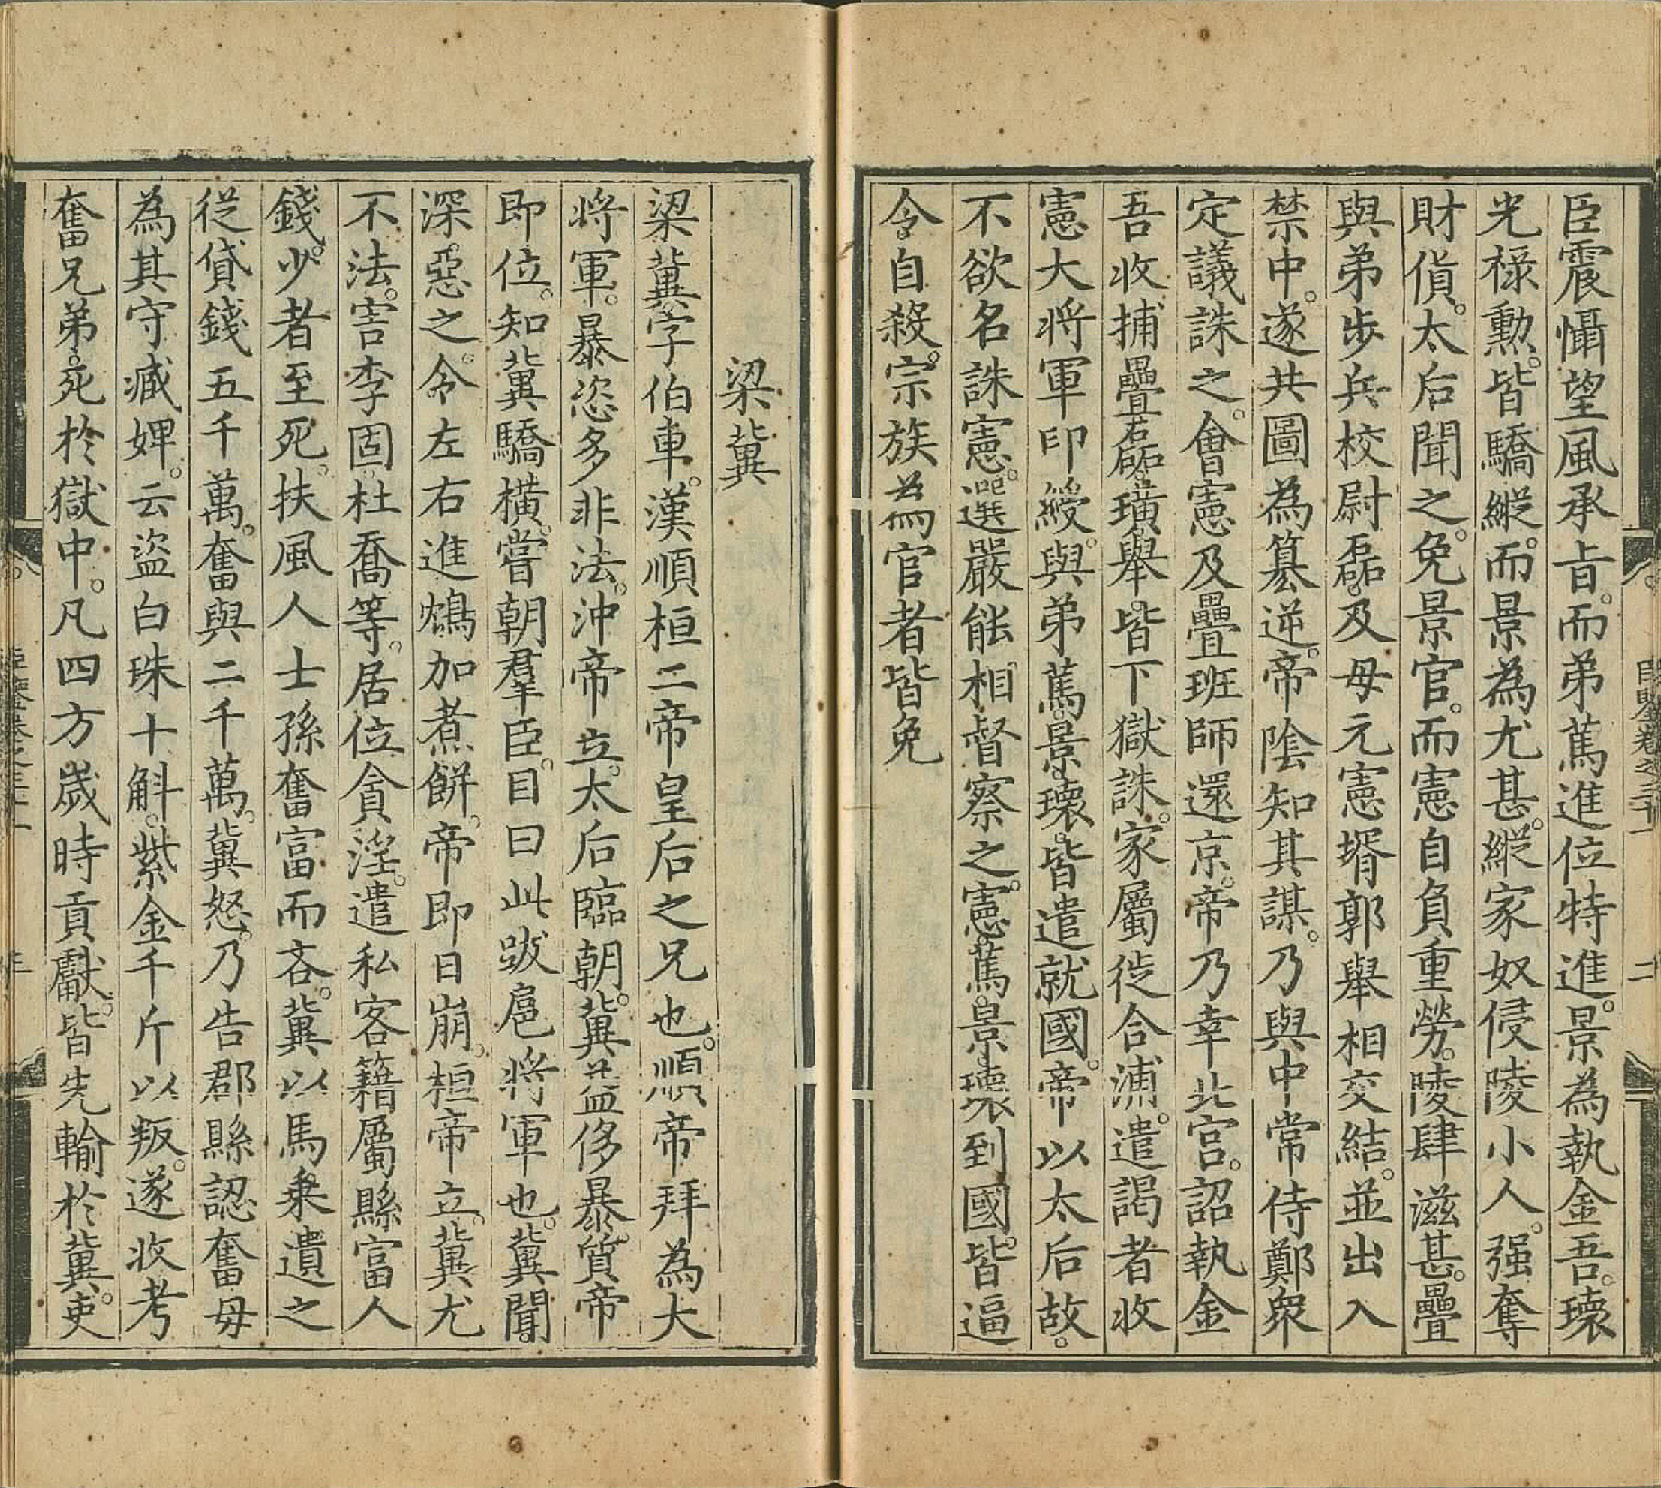 臣震懾望風承旨。而弟篤進位特進。景為執金吾。瓌
光祿勳。皆驕縱。而景為尤甚。縱家奴侵陵小人。强奪
財貨。太后聞之。免景官。而憲自負重勞。陵肆滋甚。疊
與弟步兵校尉磊。及母元憲壻郭舉相交結。並出入
禁中。遂共圖為簒逆。帝陰知其謀。乃與中常侍鄭衆
定議誅之。會憲及疊班師還京。帝乃幸北宮。詔執金
吾收捕疊磊璜舉。皆下獄誅。家屬徙合浦。遣謁者收
憲大將軍印綬。與弟篤景瓌。皆遣就國。帝以太后故。
不欲名誅憲。選嚴能相督察之。憲篤景瓌到國。皆逼
令自殺。宗族為官者皆免
梁冀
梁冀字伯車。漢順桓二帝皇后之兄也。順帝拜為大
將軍。暴恣多非法。沖帝立。太后臨朝。冀益侈暴。質帝
即位。知冀驕橫。嘗朝羣臣。目曰此跋扈將軍也。冀聞
深惡之。令左右進鴆加煮餅。帝即日崩。桓帝立。冀尤
不法。害李固杜喬等。居位貪淫。遣私客籍屬縣富人
錢。少者至死。扶風人士孫奮富而吝。冀以馬乘遺之
從貸錢五千萬。奮與二千萬。冀怒。乃告郡縣認奮母
為其守臧婢。云盜白珠十斛。紫金千斤以叛。遂收考
奮兄弟。死於獄中。凡四方歲時貢獻。皆先輸於冀。吏